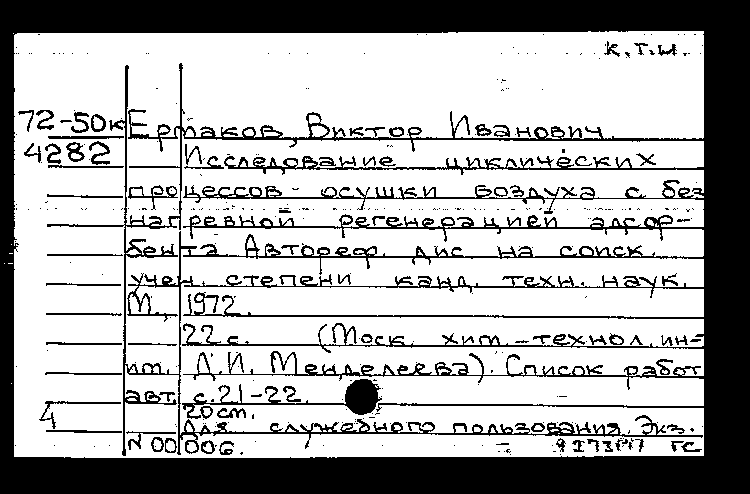 К.Т.И.
72-50к Ермаков, Виктор Иванович.
4282 Исследование циклических
процессов осушки воздуха с без
нагревной регенерацией адсор-
бента. Автореф. дис. на соиск.
учен. степени канд. техн. наук.
М., 1972.
22 с. (Моск. хим.-технол. ин-
им. Д.И. Менделеева). Список работ
авт. с.21-22.
20 cm.
4 Для служебного пользования. Экз.
N 00006. ГС